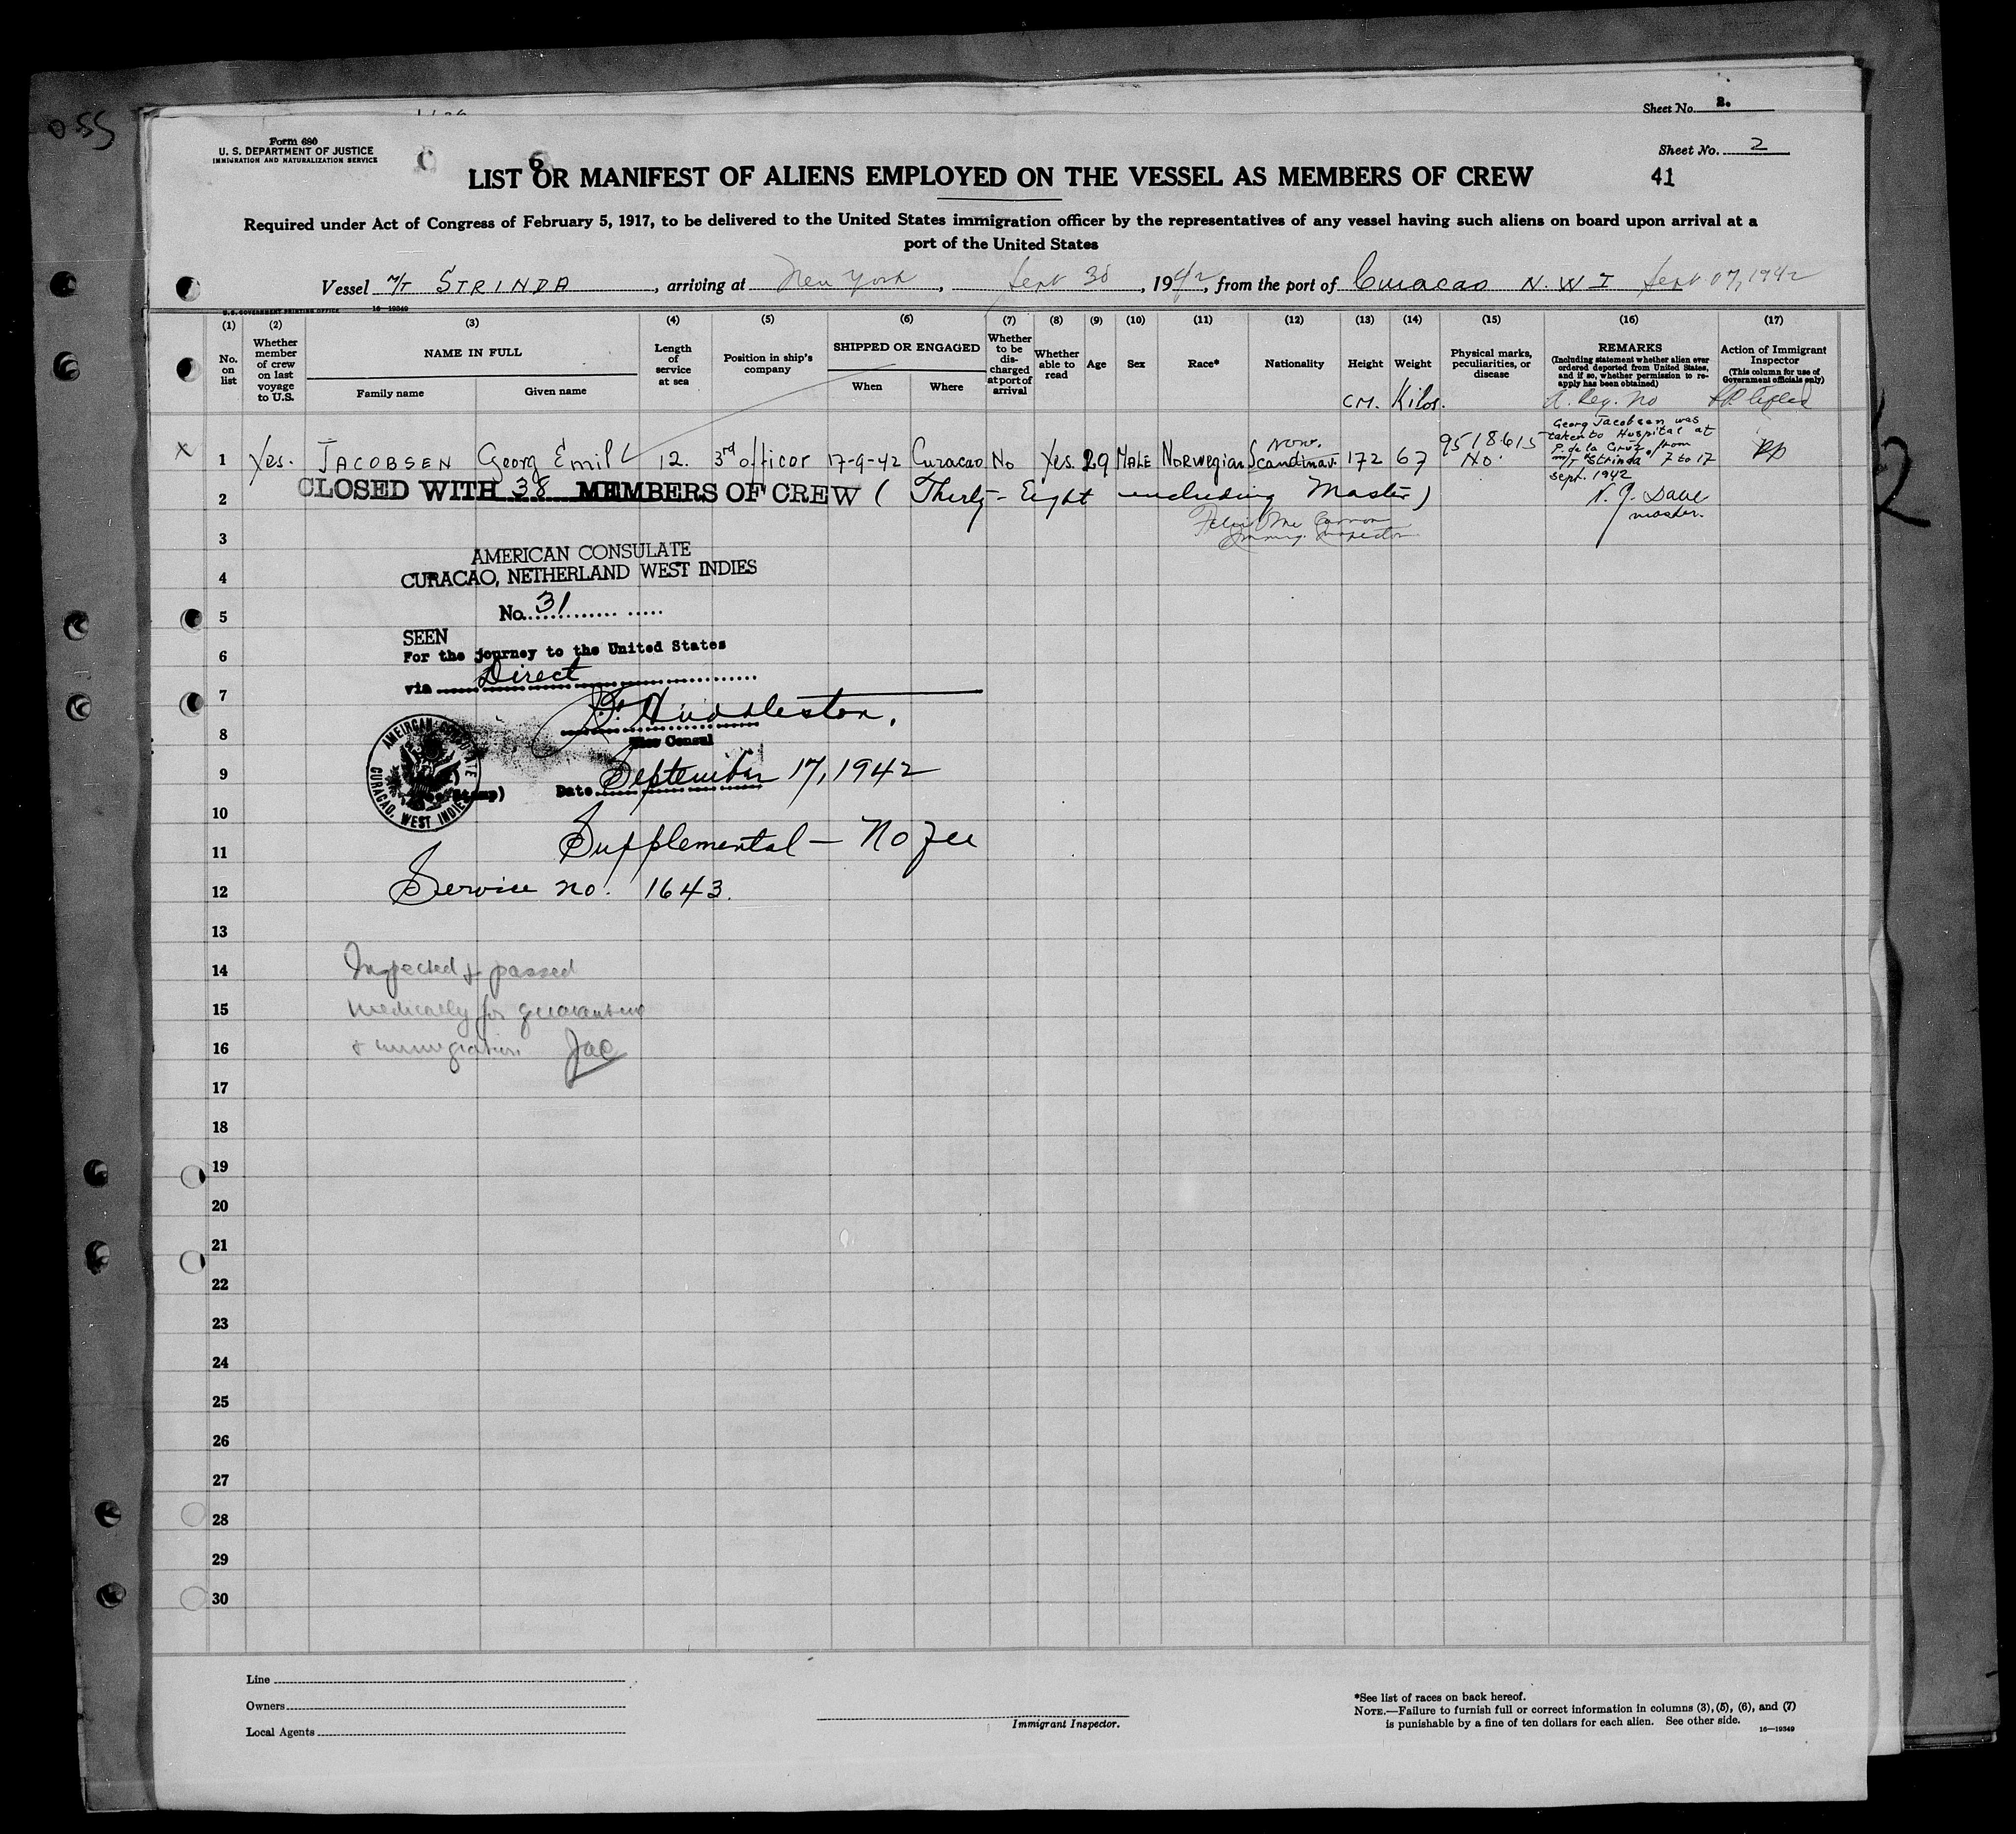 055
Sheet No. 2.
Form 680
U. S. DEPARTMENT OF JUSTICE
IMMIGRATION AND NATURALIZATION SERVICE
Sheet No. 2
LIST OR MANIFEST OF ALIENS EMPLOYED ON THE VESSEL AS MEMBERS OF CREW
41
Required under Act of Congress of February 5, 1917, to be delivered to the United States immigration officer by the representatives of any vessel having such aliens on board upon arrival at a
port of the United States
Vessel M/T STRINDA, arriving at New York, Sept 30, 1942, from the port of Curacao N.W.I Sept 17, 1942
U.S. GOVERNMENT PRINTING OFFICE 16-19349
(1) (2) (3) (4) (5) (6) (7) (8) (9) (10) (11) (12) (13) (14) (15) (16) (17)
No. on list
Whether member of crew on last voyage to U.S.
NAME IN FULL
Family name Given name
Length of service at sea
Position in ship's company
SHIPPED OR ENGAGED
When Where
Whether to be discharged at port of arrival
Whether able to read
Age
Sex
Race*
Nationality
Height
CM.
Weight
Kilos.
Physical marks, peculiarities, or disease
REMARKS
(Including statement whether alien ever ordered deported from United States, and if so, whether permission to re-apply has been obtained)
A. Reg. No
Action of Immigrant Inspector
(This column for use of Government officials only)
X 1 Yes. JACOBSEN Georg Emil 12. 3rd officer 17-9-42 Curacao No Yes. 29 MALE Norwegian Scandinav. Norw. 172 67 9518615 No.
Georg Jacobsen was
taken to Hospital at
P. de la Cruz from
m/T Strinda 7 to 17
sept. 1942
master.
2 CLOSED WITH 38 MEMBERS OF CREW (Thirty-Eight including Master)
3
Immig. Inspector
AMERICAN CONSULATE
4
CURACAO, NETHERLAND WEST INDIES
5
No. 31
SEEN
6
For the journey to the United States
via Direct
7
Huddleston.
8
Vice Consul
AMERICAN CONSULATE
CURACAO, WEST INDIES
9
Date September 17, 1942
10
Supplemental - No fee
11
12
Service no. 1643.
13
14
Inspected & passed
15
medically for quarantine
16
& immigration JAC
17
18
19
20
21
22
23
24
25
26
27
28
29
30
Line
Owners
Local Agents
Immigrant Inspector.
*See list of races on back hereof.
NOTE.—Failure to furnish full or correct information in columns (3), (5), (6), and (7)
is punishable by a fine of ten dollars for each alien. See other side.
16-19349